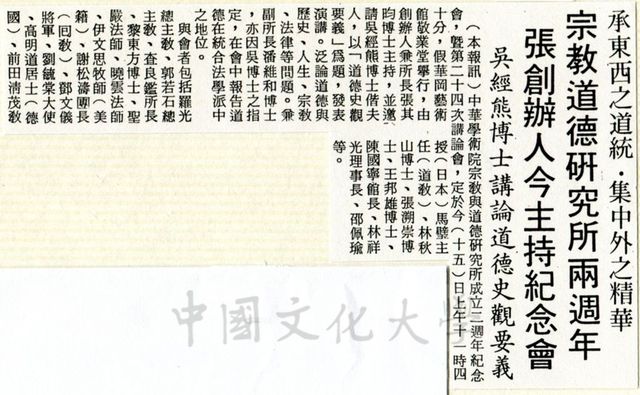 承東西之道統．集中外之精華
宗教道德研究所兩週年
張創辦人今主持紀念會
吳經熊博士講論道德史觀要義
（本報訊）中華學術院宗教與道德研究所成立二週年紀念
會，暨第二十四次講論會，定於今（十五）日上午十一時四
十分，假華岡藝術
館敬業堂舉行，由
創辦人兼所長張其
昀博士主持，並邀
請吳經熊博士偕夫
人，以「道德史觀
要義」為題，發表
演講。泛論道德與
歷史、人生、宗教
、法律等問題。兼
副所長潘維和博士
，亦因吳博士之指
定，在會中報告道
德在統合法學派中
之地位。
與會者包括羅光
總主教、郭若石總
主教、查良鑑所長
、黎東方博士、聖
嚴法師、曉雲法師
、伊文思牧師（美
籍）、謝松濤團長
（回教）、鄧文儀
將軍、劉毓棠大使
、高明道居士（德
國）、前田清茂教
授（日本）馬璧主
任（道教）、林秋
山博士、張溯崇博
士、王邦雄博士、
陳國寧館長、林祥
光理事長、邵佩瑜
等。
中國文化大學